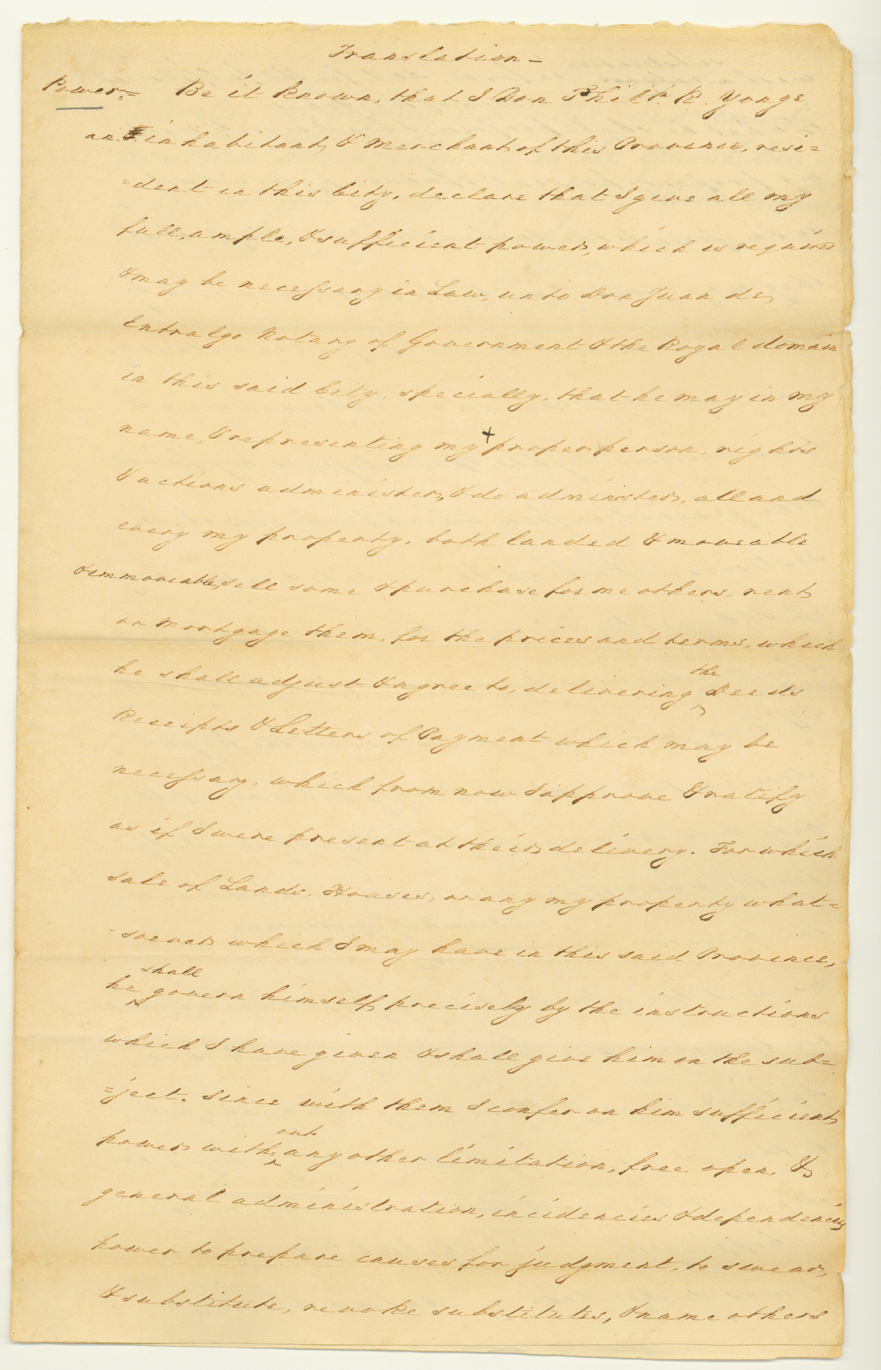 Translation –
Power,= Be it Known, that I Don Philp. R. Yonge
an inhabitant, & Merchant of this Province, resi=
=dent in this City, declare that I give all my
full, ample, & sufficient power, which is required
& may be necessary in Law, unto Don Juan de
Entralgo Notary of Government & the Royal domain
in this said City, specially, that he may in my
name, & representing my + proper person, rights
& actions administer, & do administer, all and
every my property, both landed & moveable
& immoveable, sell some & purchase for me others, rent
or Mortgage them, for the prices and terms, which
he shall adjust & agree to, delivering the Deeds
Receipts & Letters of Payment which may be
necessary, which from now I approve & ratify
as if I were present at their delivery. For which
sale of Lands, Houses, or any my property what=
=soever which I may have in this said Province,
he shall govern himself precisely by the instructions
which I have given & shall give him on the sub=
=ject. Since with them I confer on him sufficient
power without any other limitation, free open, &
general administration, incidencies & dependencies
power to prepare causes for judgment, to swear,
& substitute, revoke substitutes, & name others